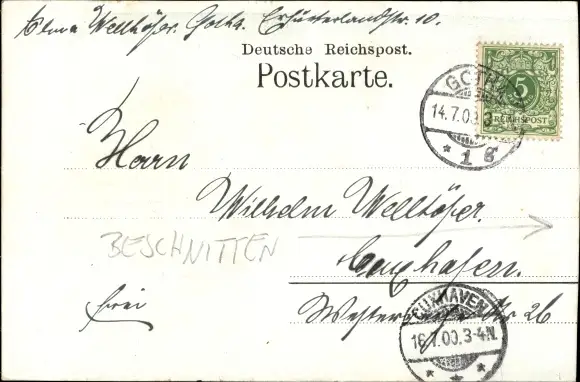 Wellhöfer. Gotha. Erfurterlandstr. 10.
Deutsche Reichspost.
Postkarte.
GOTHA
5
REICHSPOST
14.7.00.
* 1 g *
Herrn
Wilhelm Wellhöfer.
BESCHNITTEN
Cuxhafen.
frei
26
CUXHAVEN
16.7.00.3-4N.
* * *